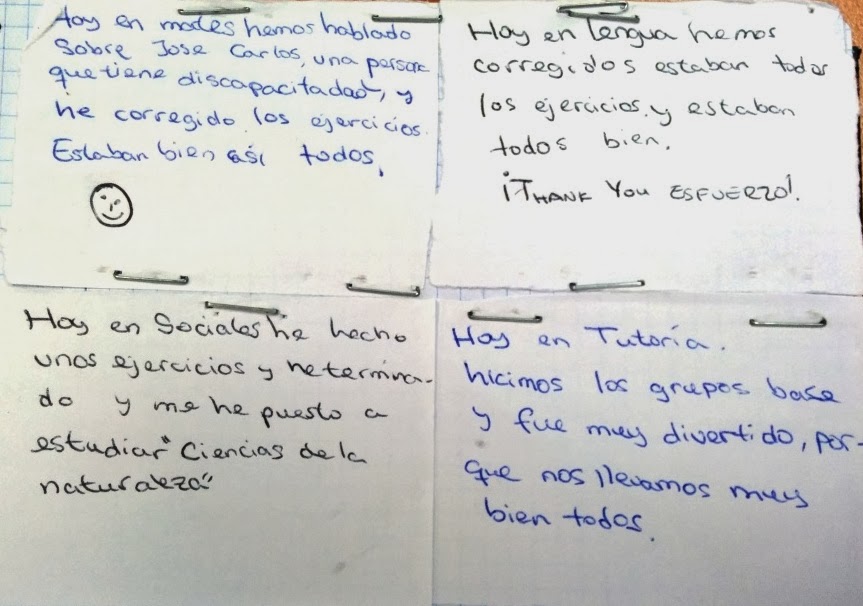 Hoy en modes hemos hablado
Sobre Jose Carlos, una persona
que tiene discapacitadad, y
he corregido los ejercicios.
Estaban bien así todos.
Hoy en lengua hemos
corregidos estaban todos
los ejercicios. y estaban
todos bien.
¡THANK YOU ESFUERZO!.
Hoy en Sociales he hecho
unos ejercicios y he termina-
do y me he puesto a
estudiar "Ciencias de la
naturaleza"
Hoy en Tutoría.
hicimos los grupos base
y fue muy divertido, por-
que nos llevamos muy
bien todos.